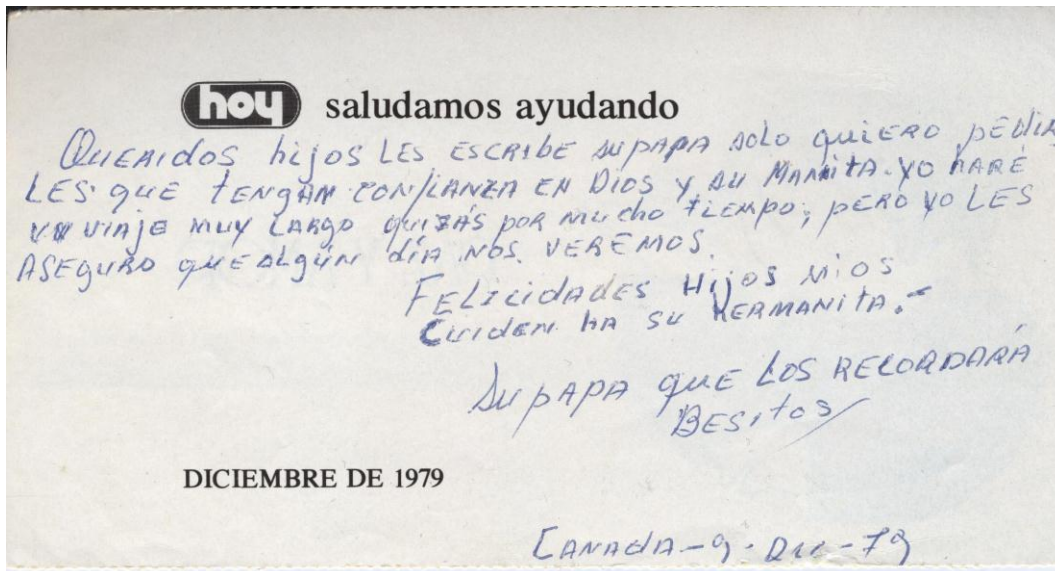 hoy saludamos ayudando
Queridos hijos LES ESCRIBE su PAPA solo quiero pedir
LES que tengan confianza en Dios y su Mamita. yo haré
un viaje muy largo quizás por mucho tiempo; pero yo LES
ASEGURO que algún día nos. VEREMOS.
FELICIDADES Hijos mios
Cuiden ha su hermanita.-
Su papa que los recordará
Besitos
DICIEMBRE DE 1979
Canada-9-Dic-79